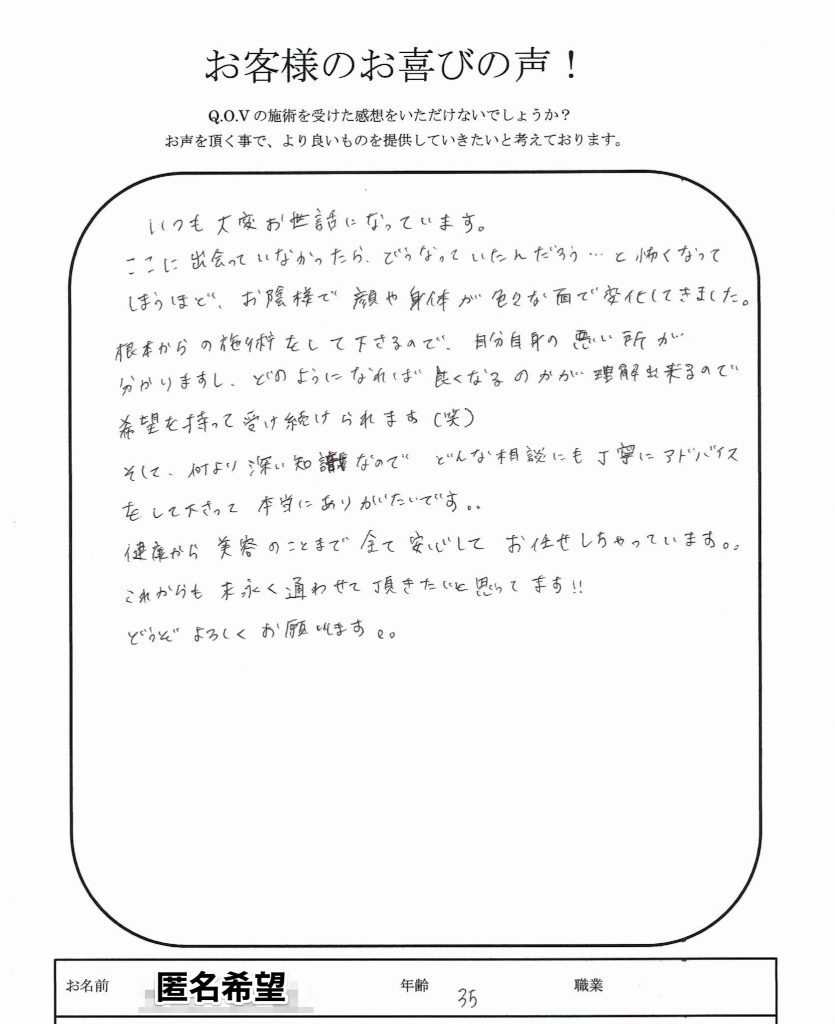 お客様のお喜びの声！
Q.O.Vの施術を受けた感想をいただけないでしょうか？
お声を頂く事で、より良いものを提供していきたいと考えております。
いつも大変お世話になっています。
ここに出会っていなかったら、どうなっていたんだろう…と怖くなって
しまうほど、お陰様で顔や身体が色々な面で変化してきました。
根本からの施術をして下さるので、自分自身の悪い所が
分かりますし、どのようになれば良くなるのかが理解出来るので
希望を持って受け続けられます(笑)
そして、何より深い知識なのでどんな相談にも丁寧にアドバイス
をして下さって本当にありがたいです。。
健康から美容のことまで全て安心してお任せしちゃっています。。
これからも末永く通わせて頂きたいと思ってます!!
どうぞよろしくお願いします。。
お名前 匿名希望 年齢 35 職業